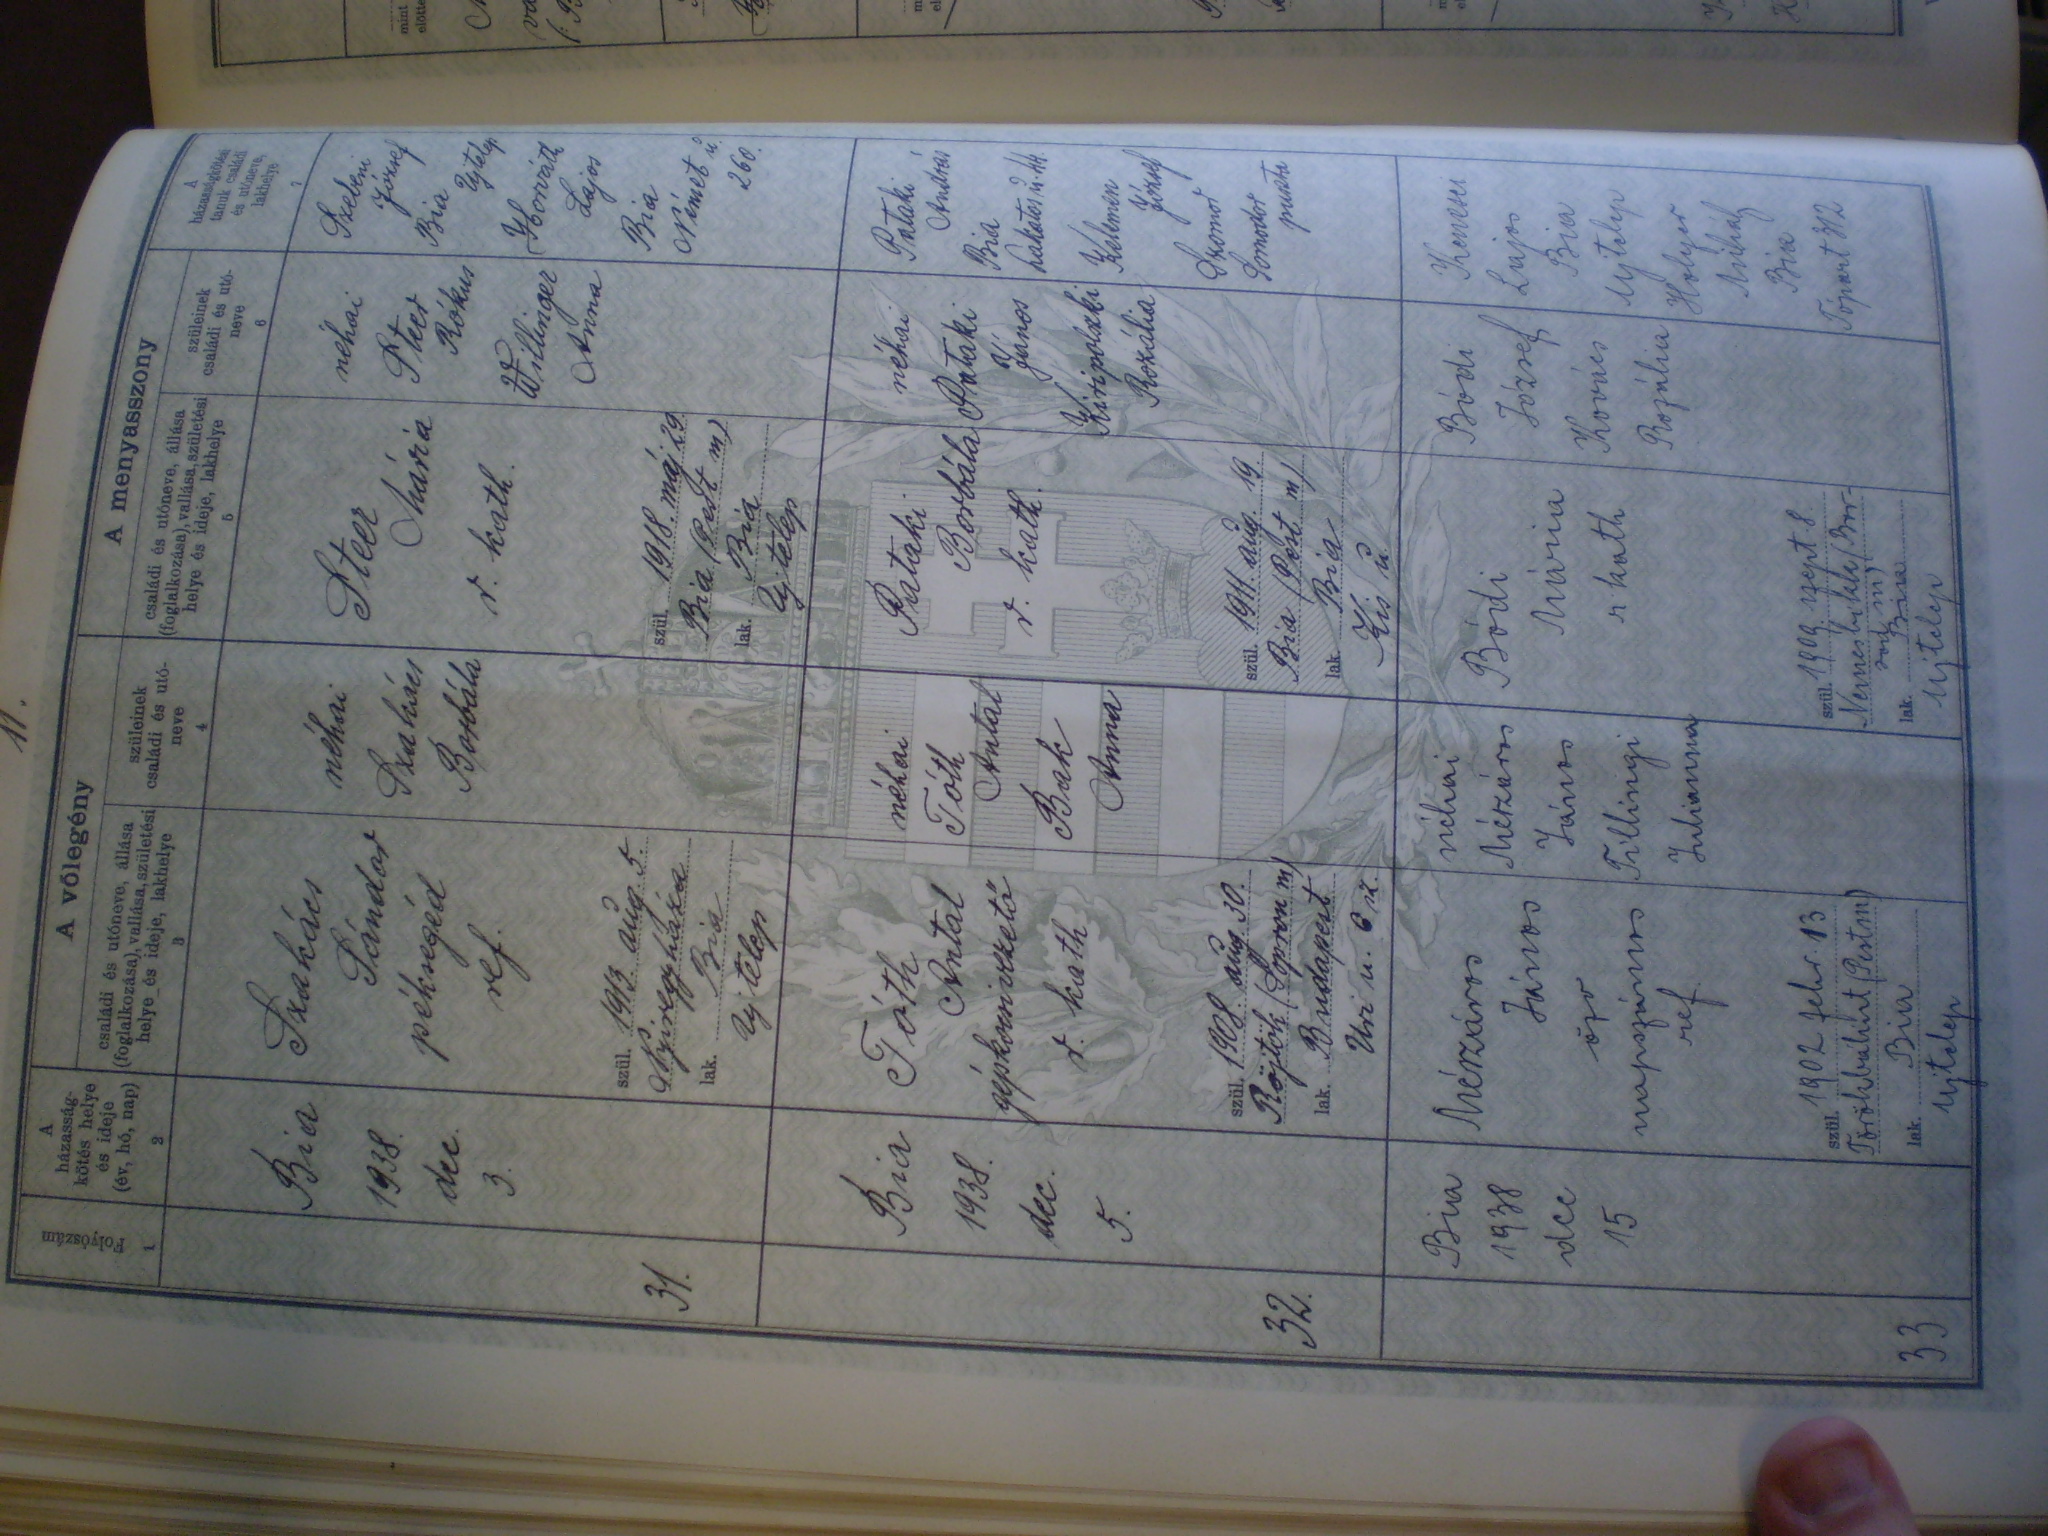 11.
A vőlegény
A menyasszony
Folyószám
1
A
házasság-
kötés helye
és ideje
(év, hó, nap)
2
családi és utóneve, állása
(foglalkozása), vallása, születési
helye és ideje, lakhelye
3
szüleinek
családi és utó-
neve
4
családi és utóneve, állása
(foglalkozása), vallása, születési
helye és ideje, lakhelye
5
szüleinek
családi és utó-
neve
6
A
házasságkötési
tanuk családi
és utóneve,
lakhelye
7
31.
Bia
1938.
dec.
3.
Szakács
Sándor
péksegéd
ref.
szül. 1913. aug. 5.
Nyiregyháza
lak. Bia
Ujtelep
néhai
Szakács
Borbála
Steer
Mária
r. kath.
szül. 1918. máj. 29.
Bia (Pest m)
lak. Bia
Ujtelep
néhai
Steer
Rókus
Willinger
Anna
Szebeni
József
Bia
Ujtelep
Horváth
Lajos
Bia
Német u.
260.
32.
Bia
1938.
dec.
5.
Tóth
Antal
gépkocsivezető
r. kath
szül. 1908. aug. 30.
Röjtök (Sopron m)
lak. Budapest
Uri u. 6 sz.
néhai
Tóth
Antal
Bak
Anna
Pataki
Borbála
r. kath.
szül. 1911. aug. 19
Bia (Pest m)
lak Bia
Kis u.
néhai
Pataki
János
Kiripolszki
Rozália
Pataki
András
Bia
Lakatos u. 44.
Kelemen
József
Szomor
Somodor
puszta
33
Bia
1938
dec
15
Mészáros
János
özv
napszámos
ref
szül. 1902 febr. 13
Törökbálint (Pestm)
lak. Bia
Ujtelep
néhai
Mészáros
János
Tillingi
Julianna
Bódi
Mária
r kath
szül. 1909 szept 8.
Nemesbükk (Bor-
sod m)
lak. Bia
Ujtelep
Bódi
József
Kovács
Rozália
Lajos
Bia
Ujtelep
Holyer
Mihály
Bia
Tópart 372